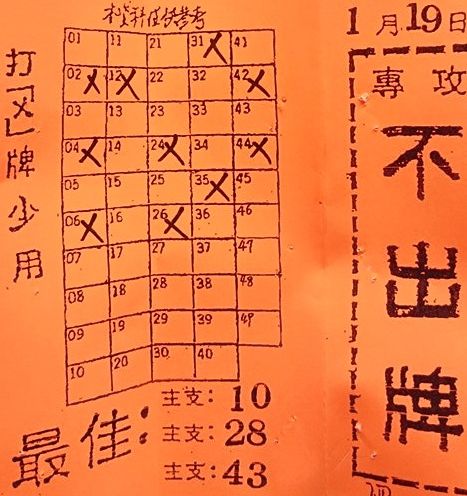 本資料僅供參考
打「X」牌少用
01 11 21 31 41
02 12 22 32 42
03 13 23 33 43
04 14 24 34 44
05 15 25 35 45
06 16 26 36 46
07 17 27 37 47
08 18 28 38 48
09 19 29 39 49
10 20 30 40
最佳：
主支：10
主支：28
主支：43
1月19日
專攻
不出牌